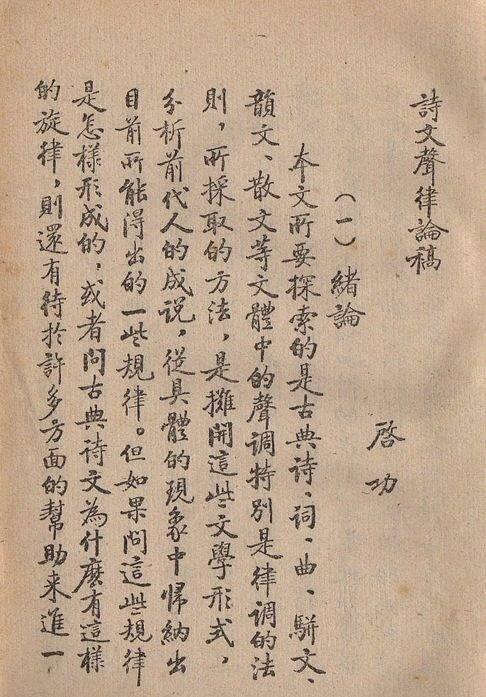 詩文聲律論稿
啓功
(一) 緒論
本文所要探索的是古典詩、詞、曲、駢文、
韻文、散文等文體中的聲調特別是律調的法
則,所採取的方法,是攤開這些文學形式,
分析前代人的成説,從具體的現象中歸納出
目前所能得出的一些規律。但如果問這些規律
是怎樣形成的,或者問古典詩文為什麽有這樣
的旋律,則還有待於許多方面的幫助来進一